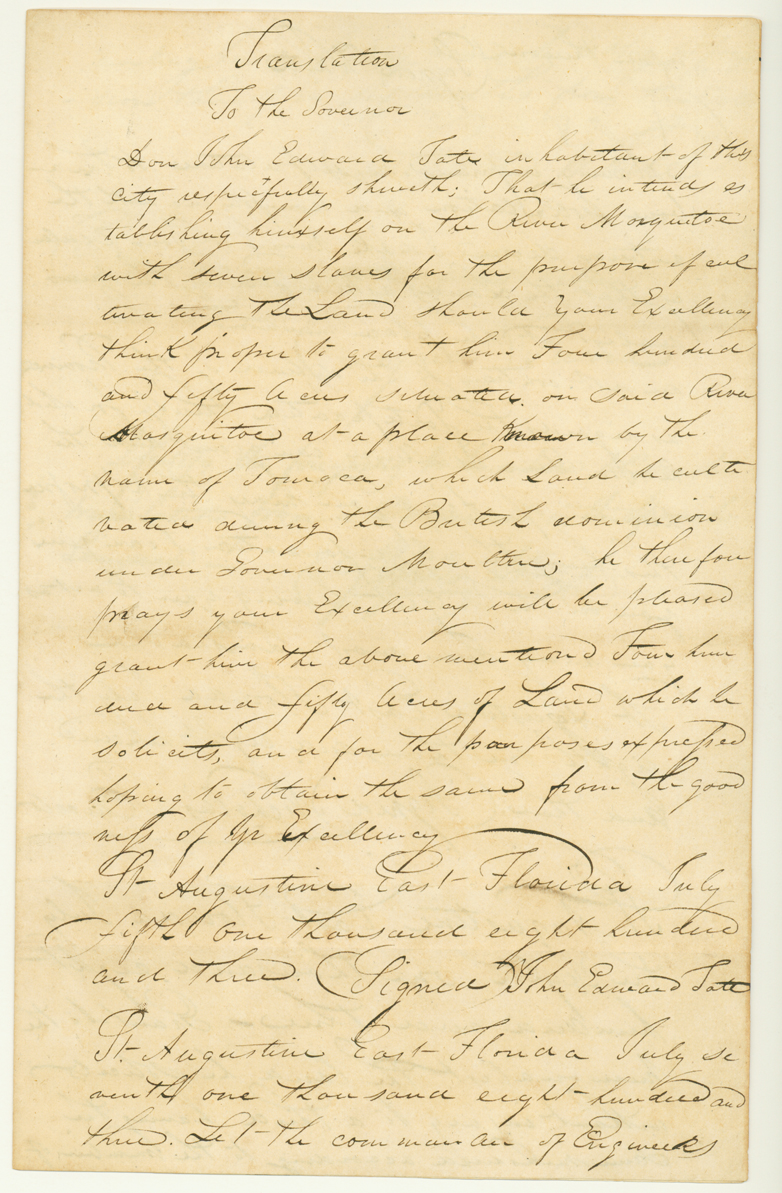 Translation
To the Governor
Don John Edward Tate inhabitant of this
city respectfully sheweth; That he intends es
tablishing himself on the River Mosquitoe
with seven slaves for the purpose of cul
tivating the Land should your Excellency
think proper to grant him Four hundred
and fifty Acres situated on said River
Mosquitoe at a place known by the
name of Tomoca, which Land he culti
vated during the British dominion
under Governor Moultrie; he therefore
prays your Excellency will be pleased
grant him the above mentiond Four hun
dred and fifty Acres of Land which he
solicits, and for the purposes expressed
hoping to obtain the same from the good
ness of Yr Excellency
St Augustine East Florida July
fifth one thousand eight hundred
and three. (Signed) John Edward Tate
St. Augustine East Florida July se
venth one thousand eight hundred and
three. Let the commander of Engineers